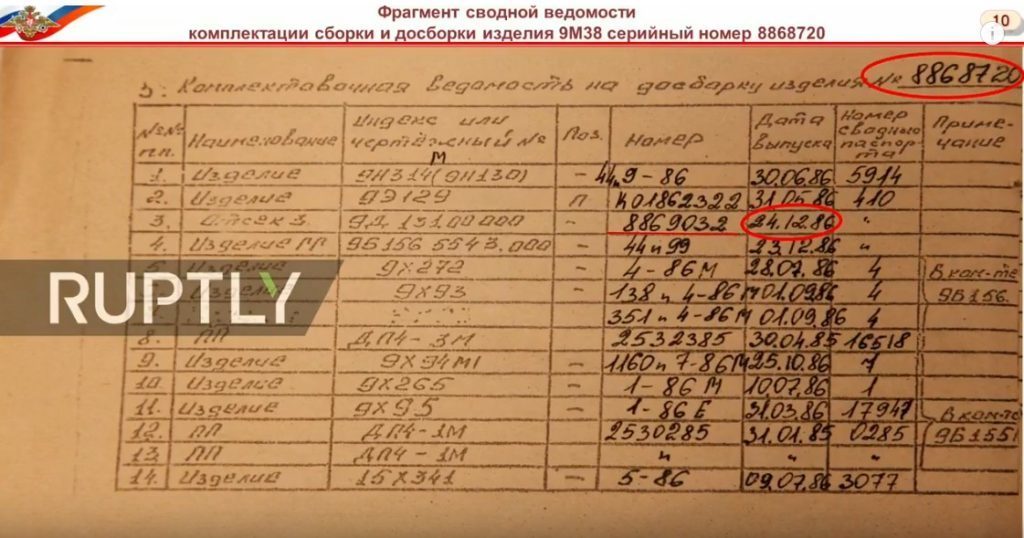 Фрагмент сводной ведомости
комплектации сборки и досборки изделия 9М38 серийный номер 8868720
10
3. Комплектовочная ведомость на досборку изделия № 8868720
№№ п.п. Наименование Индекс или чертежный № Поз. Номер Дата выпуска Номер сводного паспорта Примечание
М
1. Изделие 9Н314(9Н130) – 44п9-86 30.06.86 5914
2. Изделие 9Э129 П К01862322 31.05.86 410
3. Отсек 3 9Д.131.00.000 – 8869032 24.12.86 "
4. Изделие ГП 9Б156 5543.000 – 44п99 23.12.86 "
5. Изделие 9Х272 – 4-86М 28.07.86 4 В ком-те
Изделие 9Х93 – 138п4-86М 01.09.86 4 9Б156.
351п4-86М 01.09.86 4
RUPTLY
8. ПП ДП4-3М 2532385 30.04.85 16518
9. Изделие 9Х94М1 – 1160п7-86М 25.10.86 7
10. Изделие 9Х265 – 1-86М 10.07.86 1
11. Изделие 9Х95 – 1-86Е 31.03.86 17947 В ком-те
12. ПП ДП4-1М 2530285 31.01.85 0285 9Б1551
13. ПП ДП4-1М " " "
14. Изделие 15Х341 – 5-86 09.07.86 3077